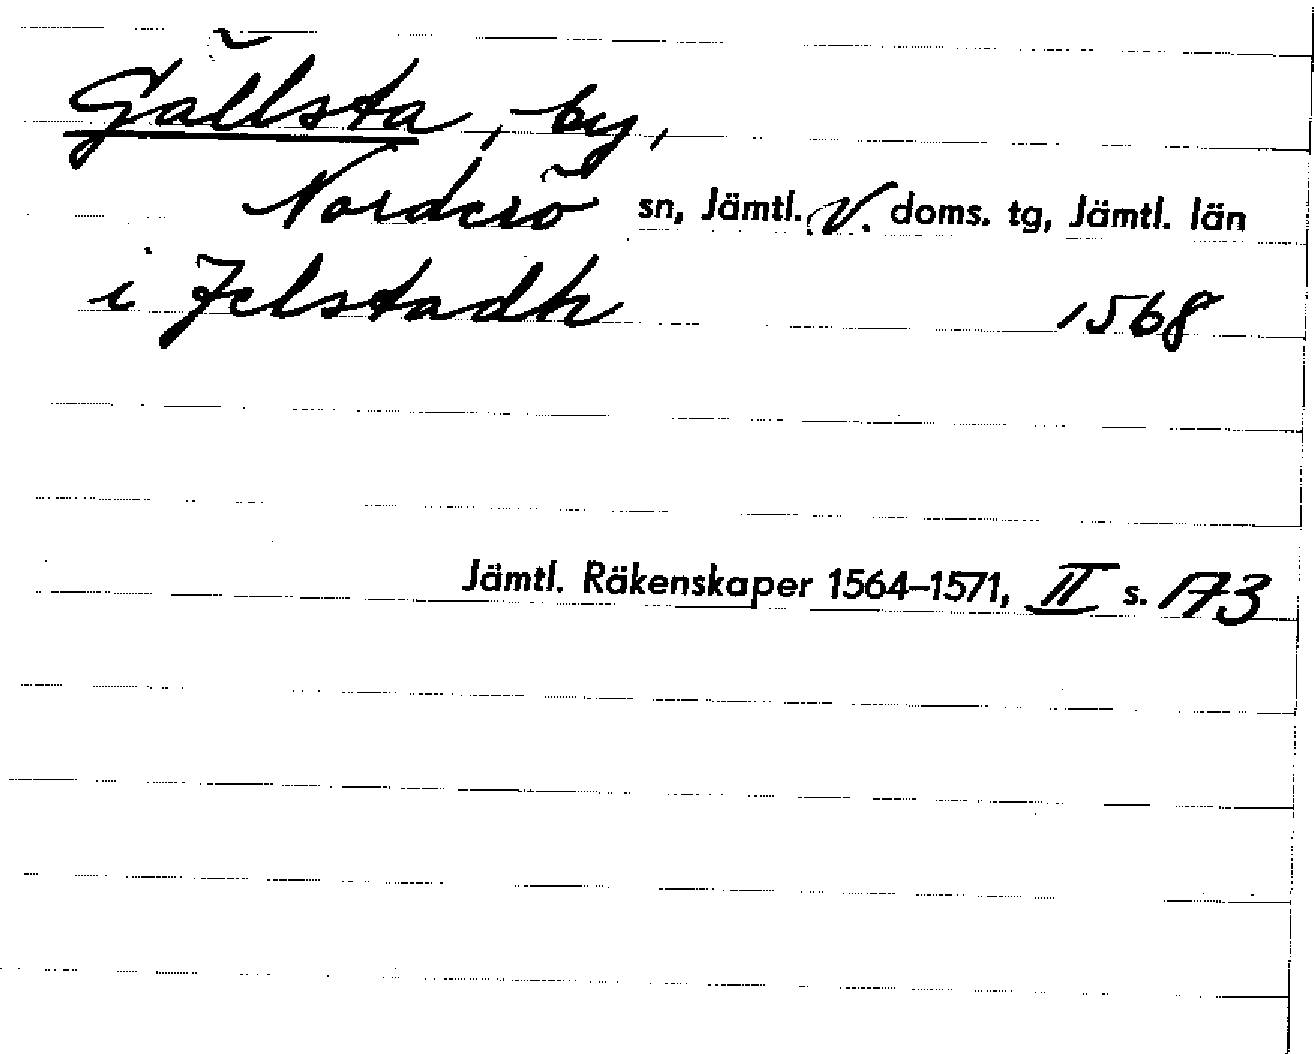 Gällsta, by,
Norderö sn, Jämtl. V. doms. tg, Jämtl. län
i Jelstadh 1568
Jämtl. Räkenskaper 1564–1571, II s. 173